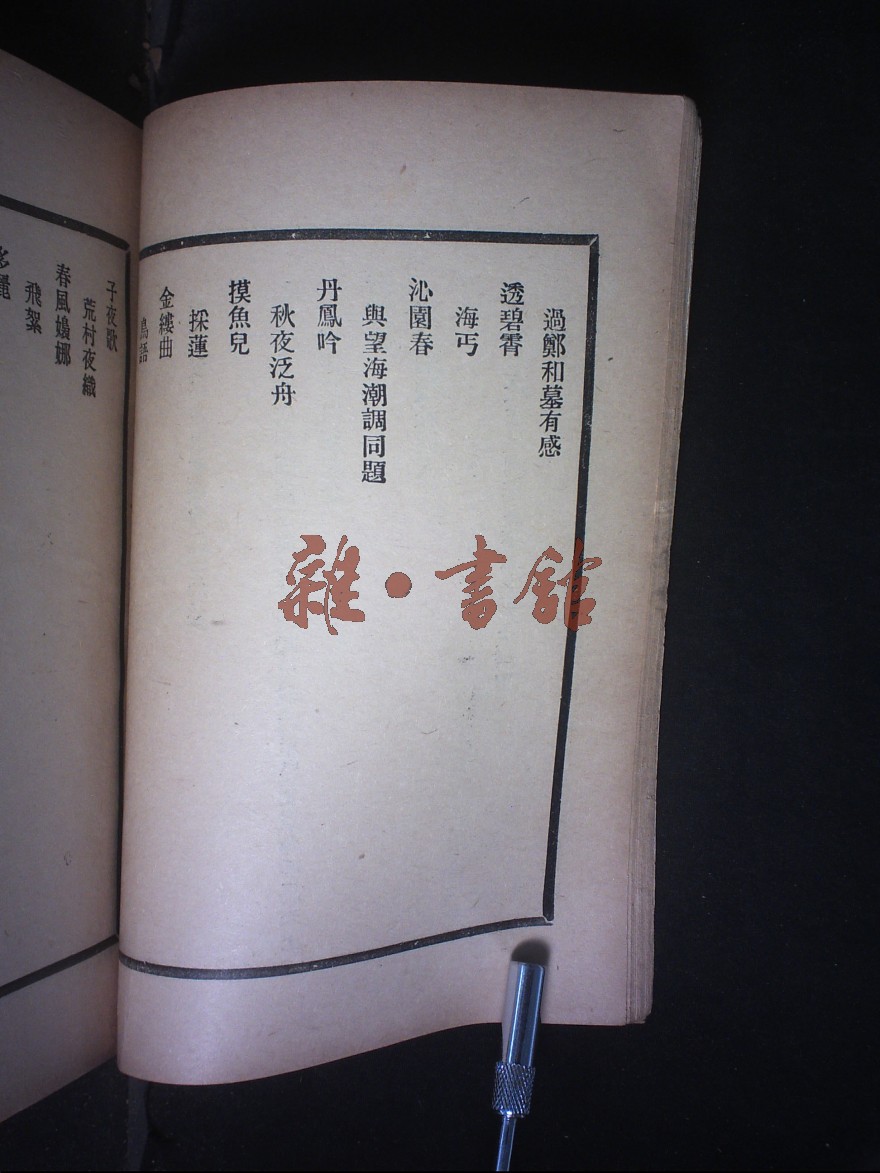 過鄭和墓有感
透碧霄
海丐
沁園春
與望海潮調同題
丹鳳吟
秋夜泛舟
摸魚兒
採蓮
金縷曲
鳥語
子夜歌
荒村夜織
春風嬝娜
飛絮
雜·書館